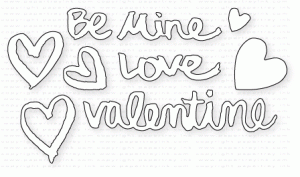 Be Mine
Love
valentine